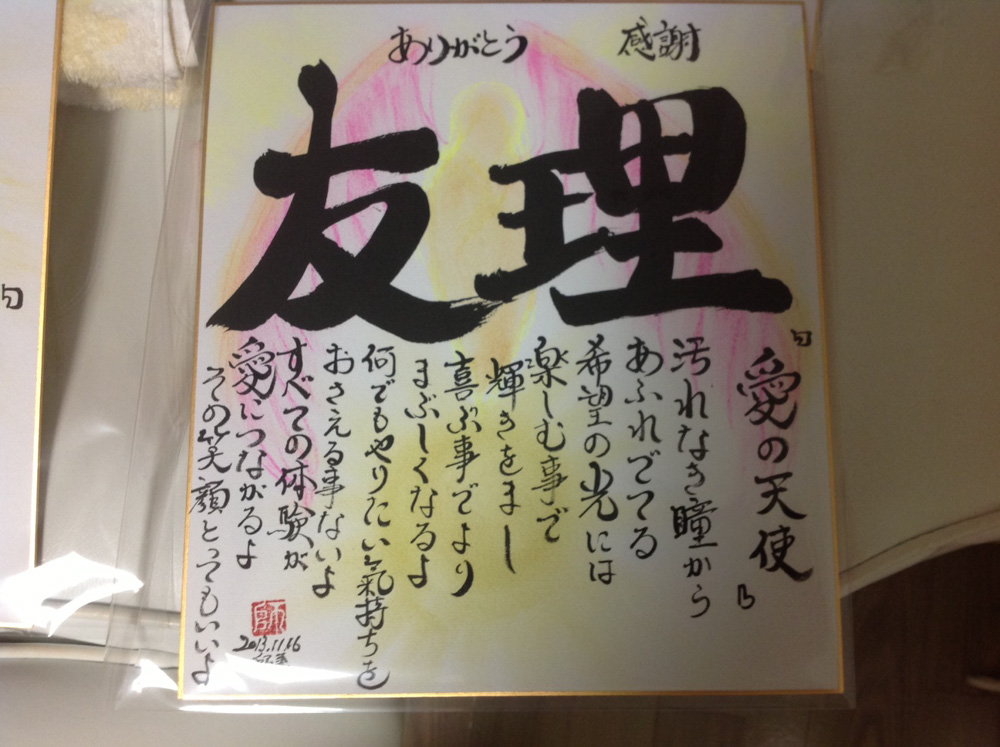 ありがとう 感謝
友理
「愛の天使」
汚れなき瞳から
あふれでてる
希望の光には
楽しむ事で
輝きをまし
喜ぶ事でより
まぶしくなるよ
何でもやりたい氣持ちを
おさえる事ないよ
すべての体験が
愛につながるよ
その笑顔とってもいいよ
師
2013.11.16